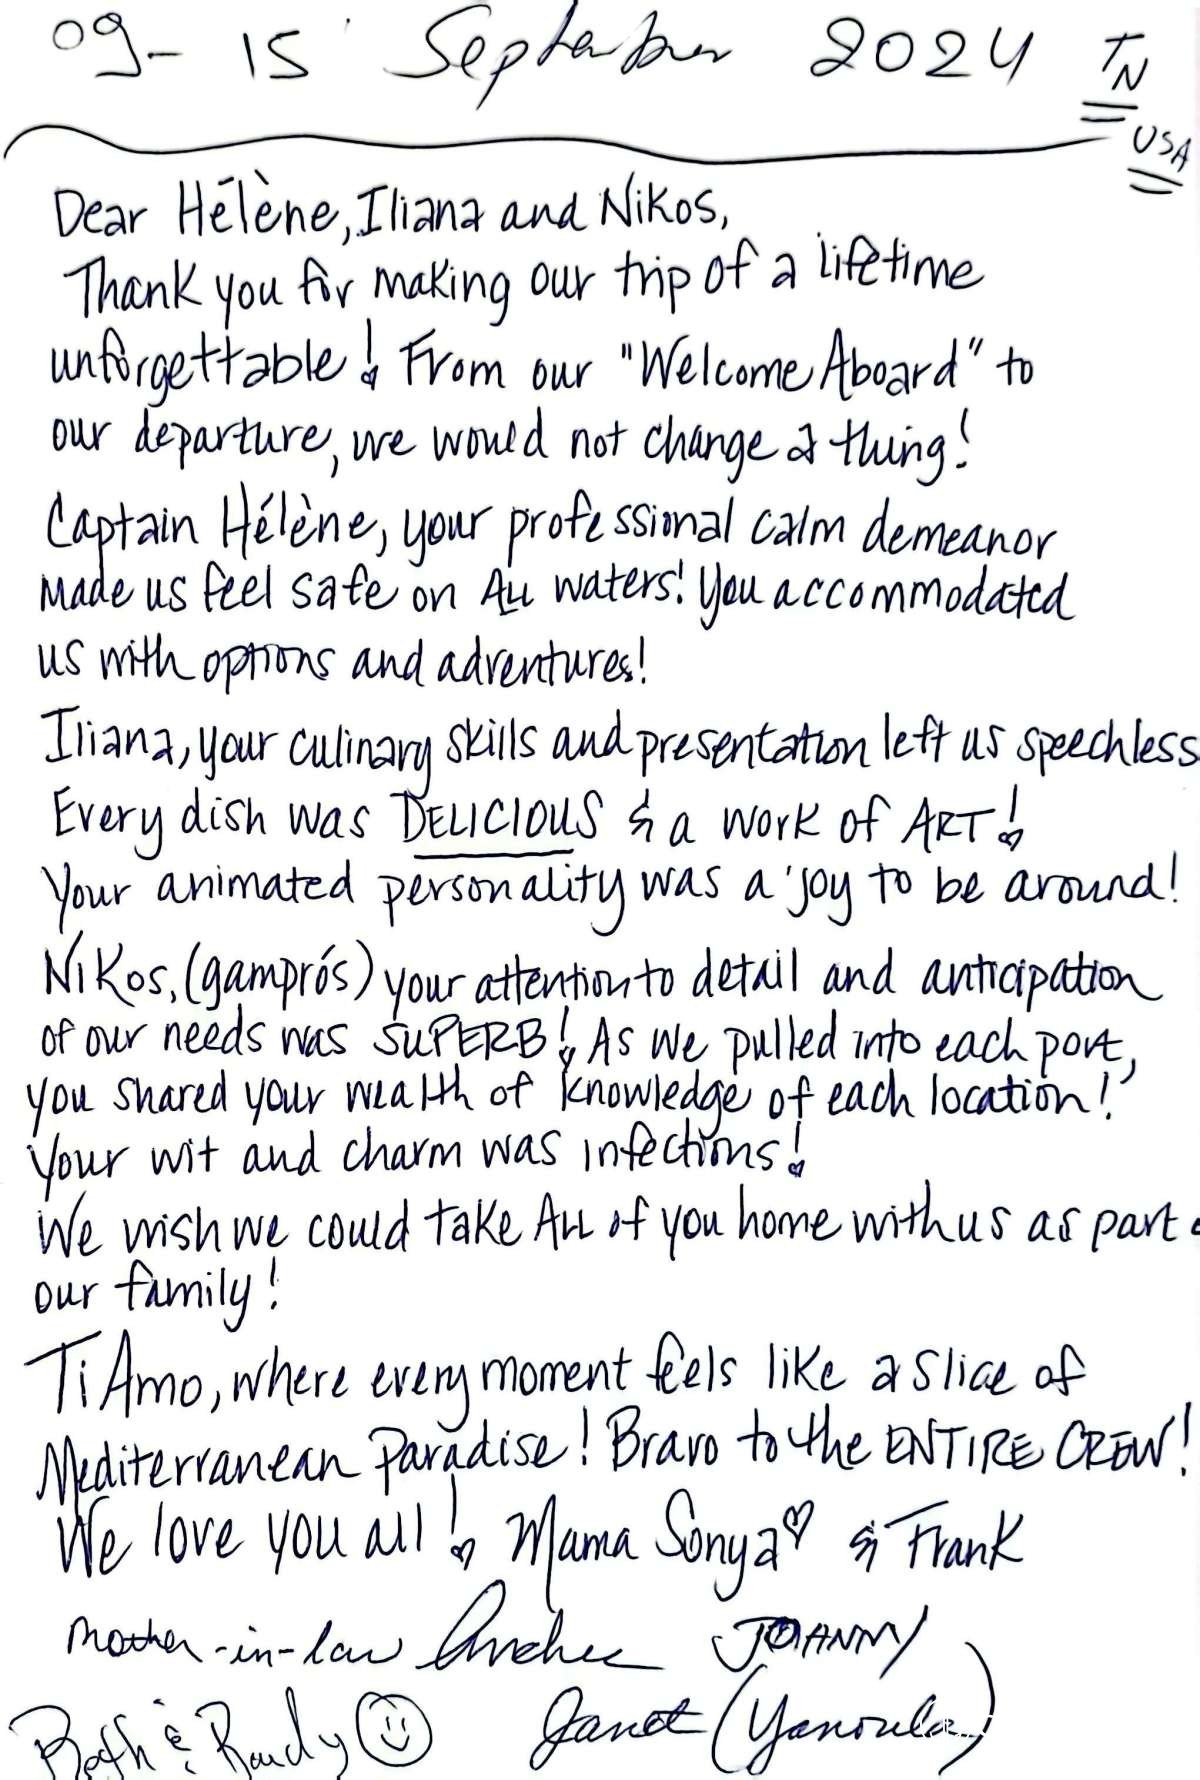 09-15 September 2024 TN
USA
Dear Hélène, Iliana and Nikos,
Thank you for making our trip of a lifetime
unforgettable! From our "Welcome Aboard" to
our departure, we would not change a thing!
Captain Hélène, your professional calm demeanor
made us feel safe on ALL waters! You accommodated
us with options and adventures!
Iliana, your culinary skills and presentation left us speechless
Every dish was DELICIOUS & a work of ART!
Your animated personality was a joy to be around!
Nikos, (gamprós) your attention to detail and anticipation
of our needs was SUPERB! As we pulled into each port,
you shared your wealth of knowledge of each location!
Your wit and charm was infectious!
We wish we could take ALL of you home with us as part
our family!
Ti Amo, where every moment feels like a slice of
Mediterranean Paradise! Bravo to the ENTIRE CREW!
We love you all! Mama Sonya & Frank
Mother-in-law JOHNNY
Beth & Randy Janet (Yanoula)